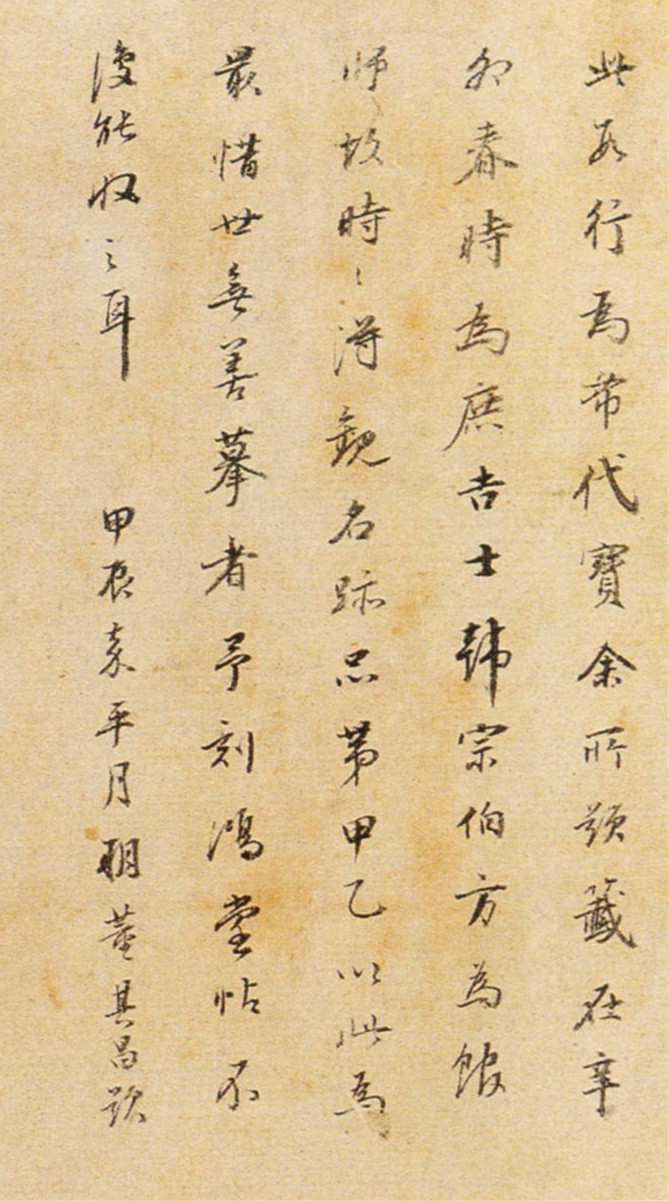 此數行爲希代寶余所題籤在辛
卯春時為庶吉士韓宗伯方為館
師故時時得觀名跡品第甲乙以此為
最惜世無善摹者予刻鴻堂帖不
復能収之耳　甲辰嘉平月朔董其昌題